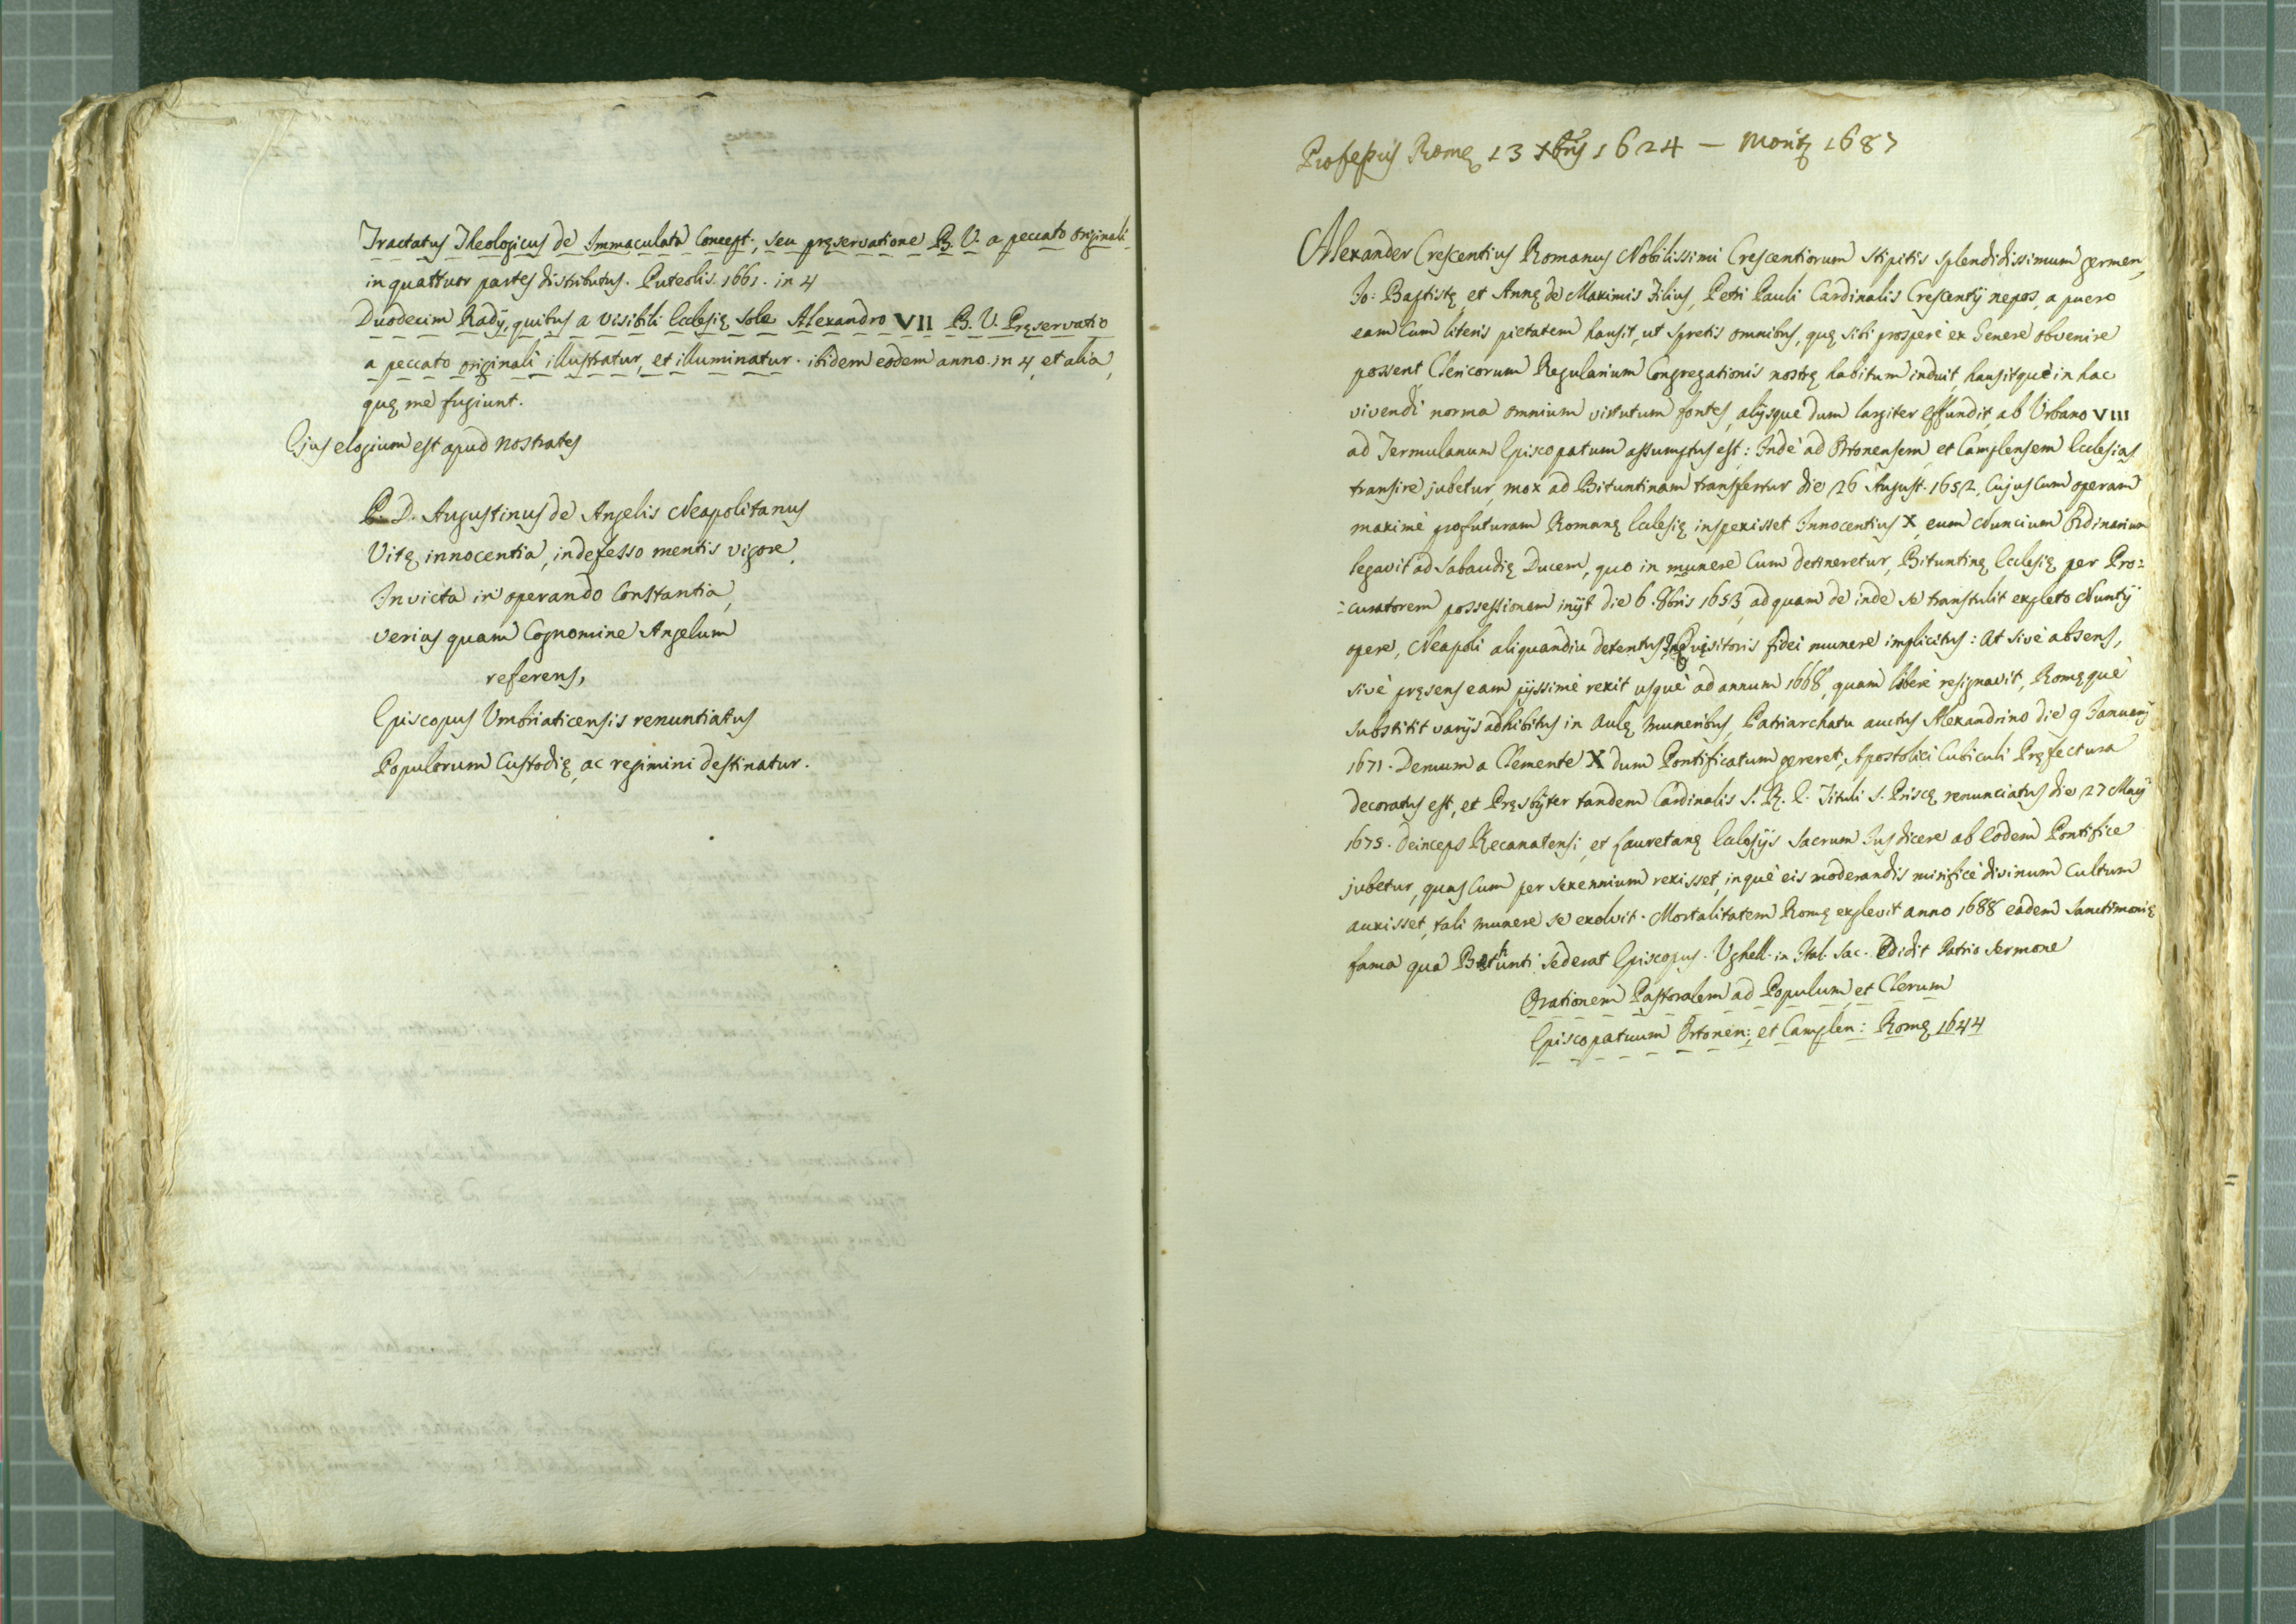 Tractatus Theologicus de Immaculata Concept., seu pręservatione B. V. a peccato originali
in quattuor partes distributus. Puteolis. 1661. in 4
Duodecim Radÿ, quibus a visibili Ecclesię sole Alexandro VII B. V. Pręservatio
a peccato originali illustratur, et illuminatur. ibidem eodem anno. in 4, et alia,
quę me fugiunt.
Ejus elogium est apud nostrates
P. D. Augustinus de Angelis Neapolitanus
Vitę innocentia, indefesso mentis vigore,
Invicta in operando Constantia,
verius quam Cognomine Angelum
referens,
Episcopus Umbriaticensis renuntiatus
Populorum Custodię, ac regimini destinatur.
Professus Romę 13 Xbris 1624 — Moritʒ 1687
Alexander Crescentius Romanus Nobilissimi Crescentiorum Stipitis splendidissimum germen,
Jo: Baptistę et Annę de Maximis Filius, Petri Pauli Cardinalis Crescentÿ nepos, a puero
eam Cum literis pietatem hausit, ut spretis omnibus, quę sibi prosperè ex Genere obvenire
possent, Clericorum Regularium Congregationis nostrę habitum induit, hausitquè in hac
vivendi norma omnium virtutum fontes, alÿsque dum largiter effundit, ab Urbano VIII
ad Termulanum Episcopatum assumptus est: Inde ad Ortonensem, et Camplensem Ecclesias
transire jubetur, mox ad Bituntinam transfertur die 26 August. 1652, Cujus Cum operam
maximè profuturam Romanę Ecclesię inspexisset Innocentius X, eum Nuncium Ordinarium
legavit ad Sabaudię Ducem, quo in munere Cum detineretur, Bituntinę Ecclesię per Pro=
=curatorem possessionem inÿt die 6. 8bris 1653, ad quam de inde se transtulit expleto Nuntÿ
opere, Neapoli aliquandiu detentus Inquisitoris fidei munere implicitus: At sivè absens,
sivè pręsens eam pÿssimè rexit usquè ad annum 1668, quam liberè resignavit, Romęquè
substitit varÿs adhibitus in Aulę muneribus, Patriarchatu auctus Alexandrino die 9 Januarÿ
1671. Demum a Clemente X dum Pontificatum gereret, Apostolici Cubiculi Pręfectura
decoratus est, et Pręsbÿter tandem Cardinalis S. R. E. Tituli S. Priscę renunciatus die 27 Maÿ
1675. Deinceps Recanatensi, et Lauretanę Ecclesÿs sacrum Jus dicere ab Eodem Pontifice
jubetur, quas Cum per sexennium rexisset, inquè eis moderandis mirificè divinum Cultum
auxisset, tali munere se exolvit. Mortalitatem Romę explevit anno 1688 eadem Sanctimonię
fama quâ Bitunti sederat Episcopus. Ughell. in Ital. Sac. Edidit Patrio Sermone
Orationem Pastoralem ad Populum, et Clerum
Episcopatuum Ortonen:, et Camplen: Romę 1644